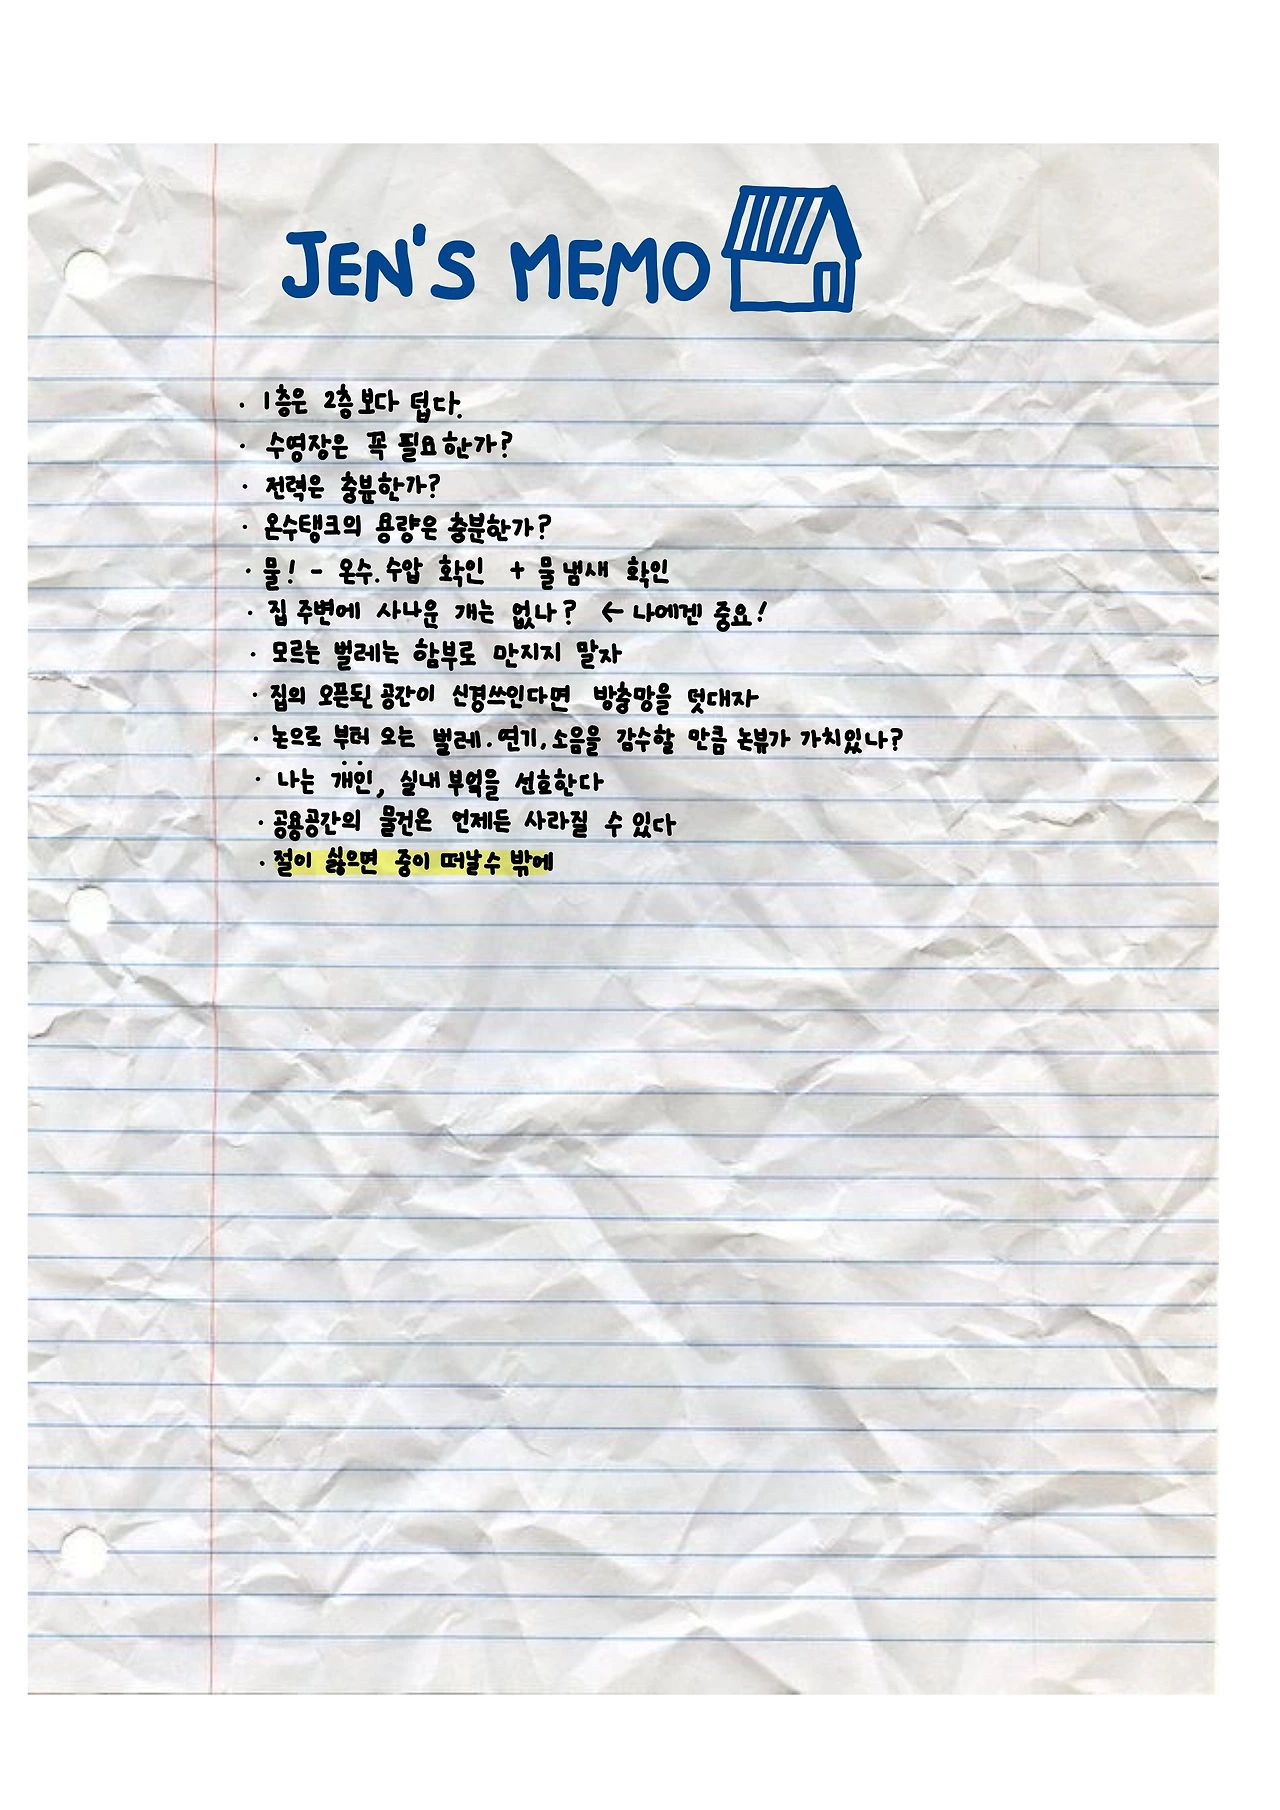 JEN'S MEMO
· 1층은 2층보다 덥다.
· 수영장은 꼭 필요한가?
· 전력은 충분한가?
· 온수탱크의 용량은 충분한가?
· 물! - 온수.수압 확인 + 물냄새 확인
· 집 주변에 사나운 개는 없나? ← 나에겐 중요!
· 모르는 벌레는 함부로 만지지 말자
· 집의 오픈된 공간이 신경쓰인다면 방충망을 덧대자
· 논으로 부터 오는 벌레.연기,소음을 감수할 만큼 논뷰가 가치있나?
· 나는 개인, 실내 부엌을 선호한다
· 공용공간의 물건은 언제든 사라질 수 있다
· 절이 싫으면 중이 떠날수 밖에